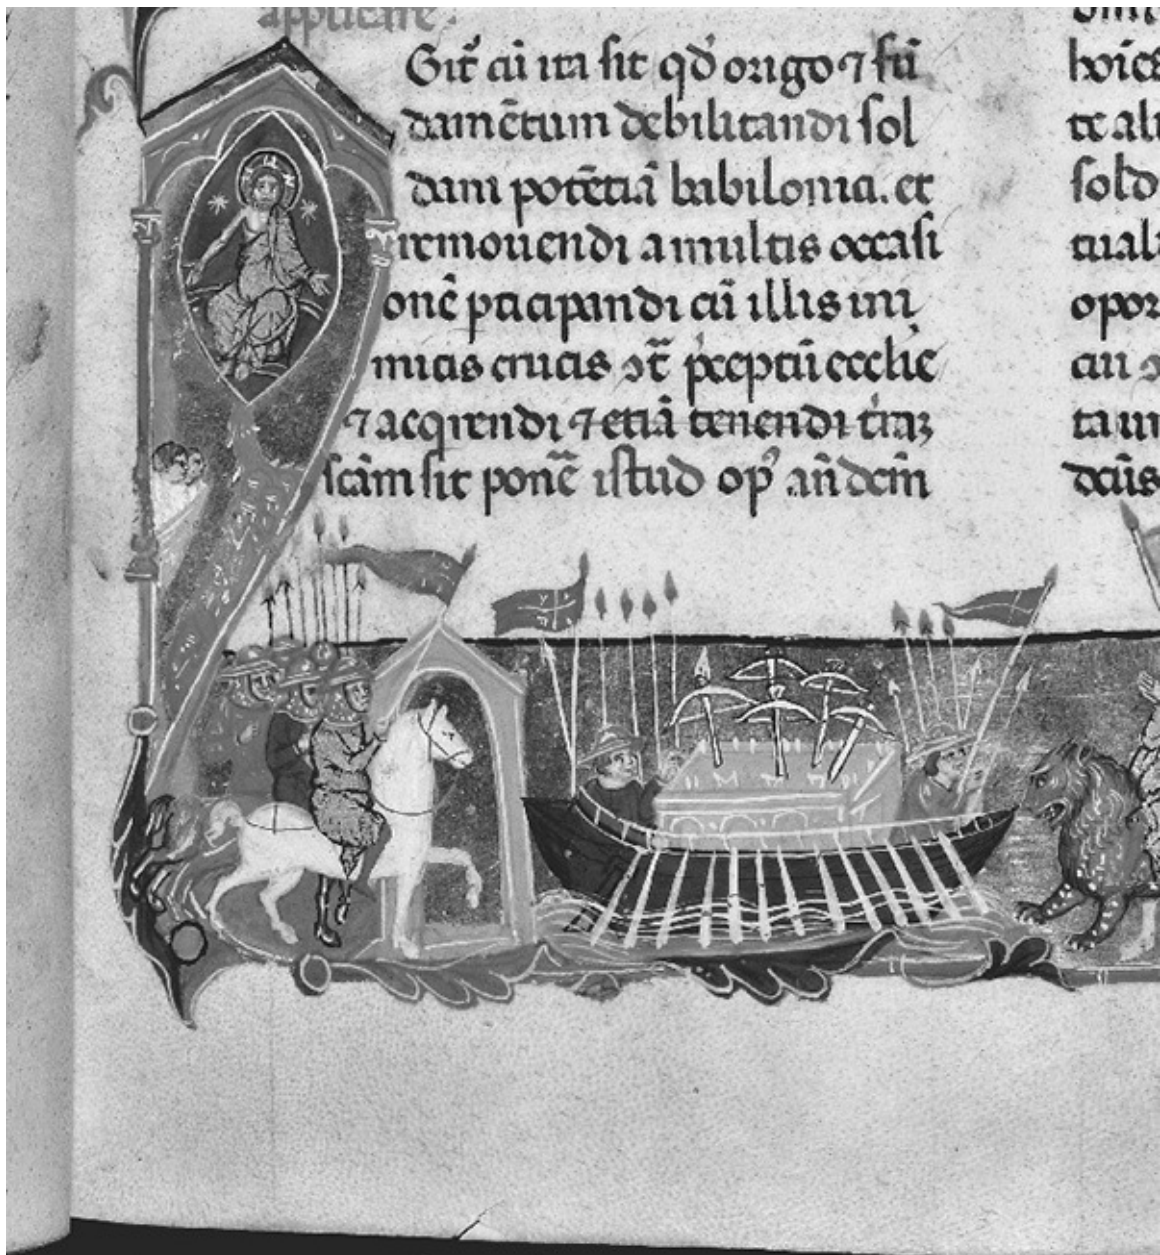 applicare.
Git᷑ cū ita sit qď origo ⁊ fū
damētum debilitandi sol
dani potētiā babilonia. et
remouendi a multis occasi
onē ꝑticipandi cū illis ini
micis crucis ↄt̄ p̄ceptū ecclie
⁊ acqrendi ⁊ etiā tenendi t̄raꝫ
scām sit pone᷑ istud op᷒ añ dcm̄
hoiēs
te ali
soldo
tuali
opor